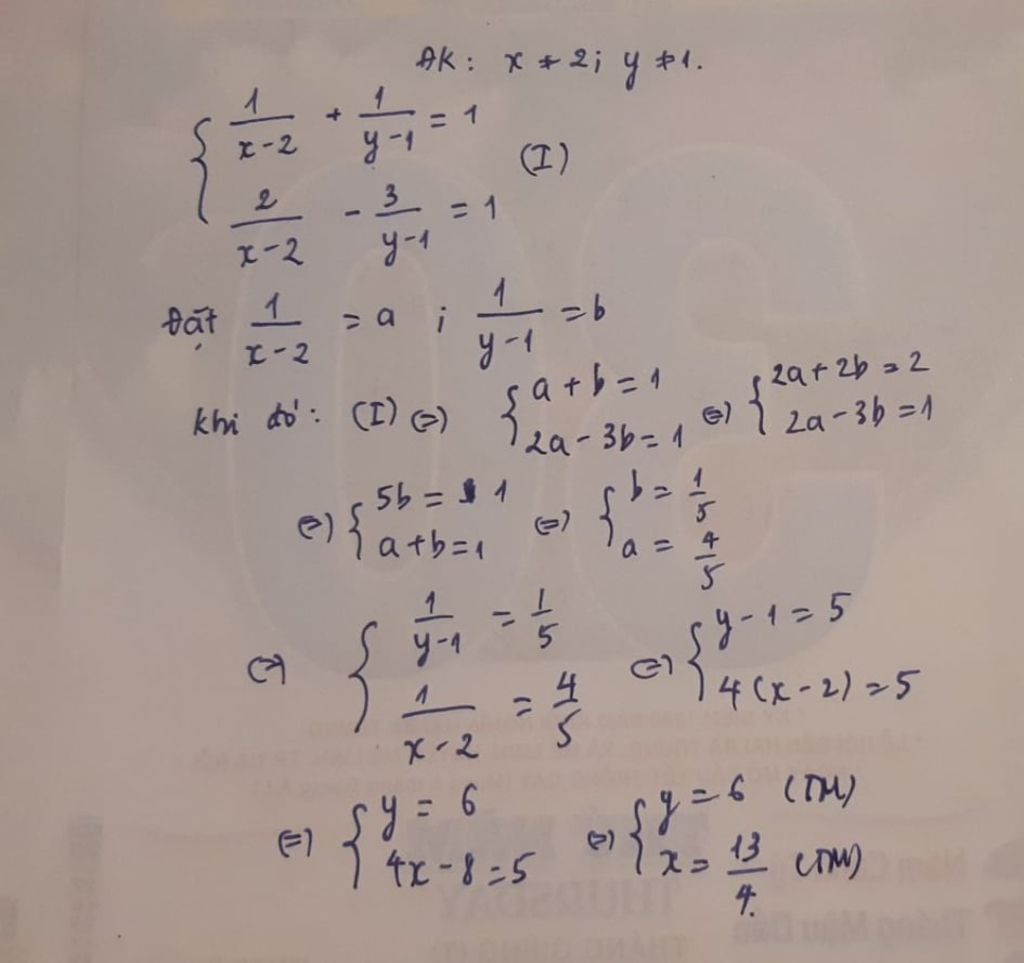 ĐK: x ≠ 2; y ≠ 1.
{ 1/(x-2) + 1/(y-1) = 1
2/(x-2) - 3/(y-1) = 1 (I)
Đặt 1/(x-2) = a ; 1/(y-1) = b
khi đó: (I) ⇔ { a + b = 1 ; 2a - 3b = 1 ⇔ { 2a + 2b = 2 ; 2a - 3b = 1
⇔ { 5b = 1 ; a + b = 1 ⇔ { b = 1/5 ; a = 4/5
⇔ { 1/(y-1) = 1/5 ; 1/(x-2) = 4/5 ⇔ { y - 1 = 5 ; 4(x - 2) = 5
⇔ { y = 6 ; 4x - 8 = 5 ⇔ { y = 6 (TM) ; x = 13/4 (TM)